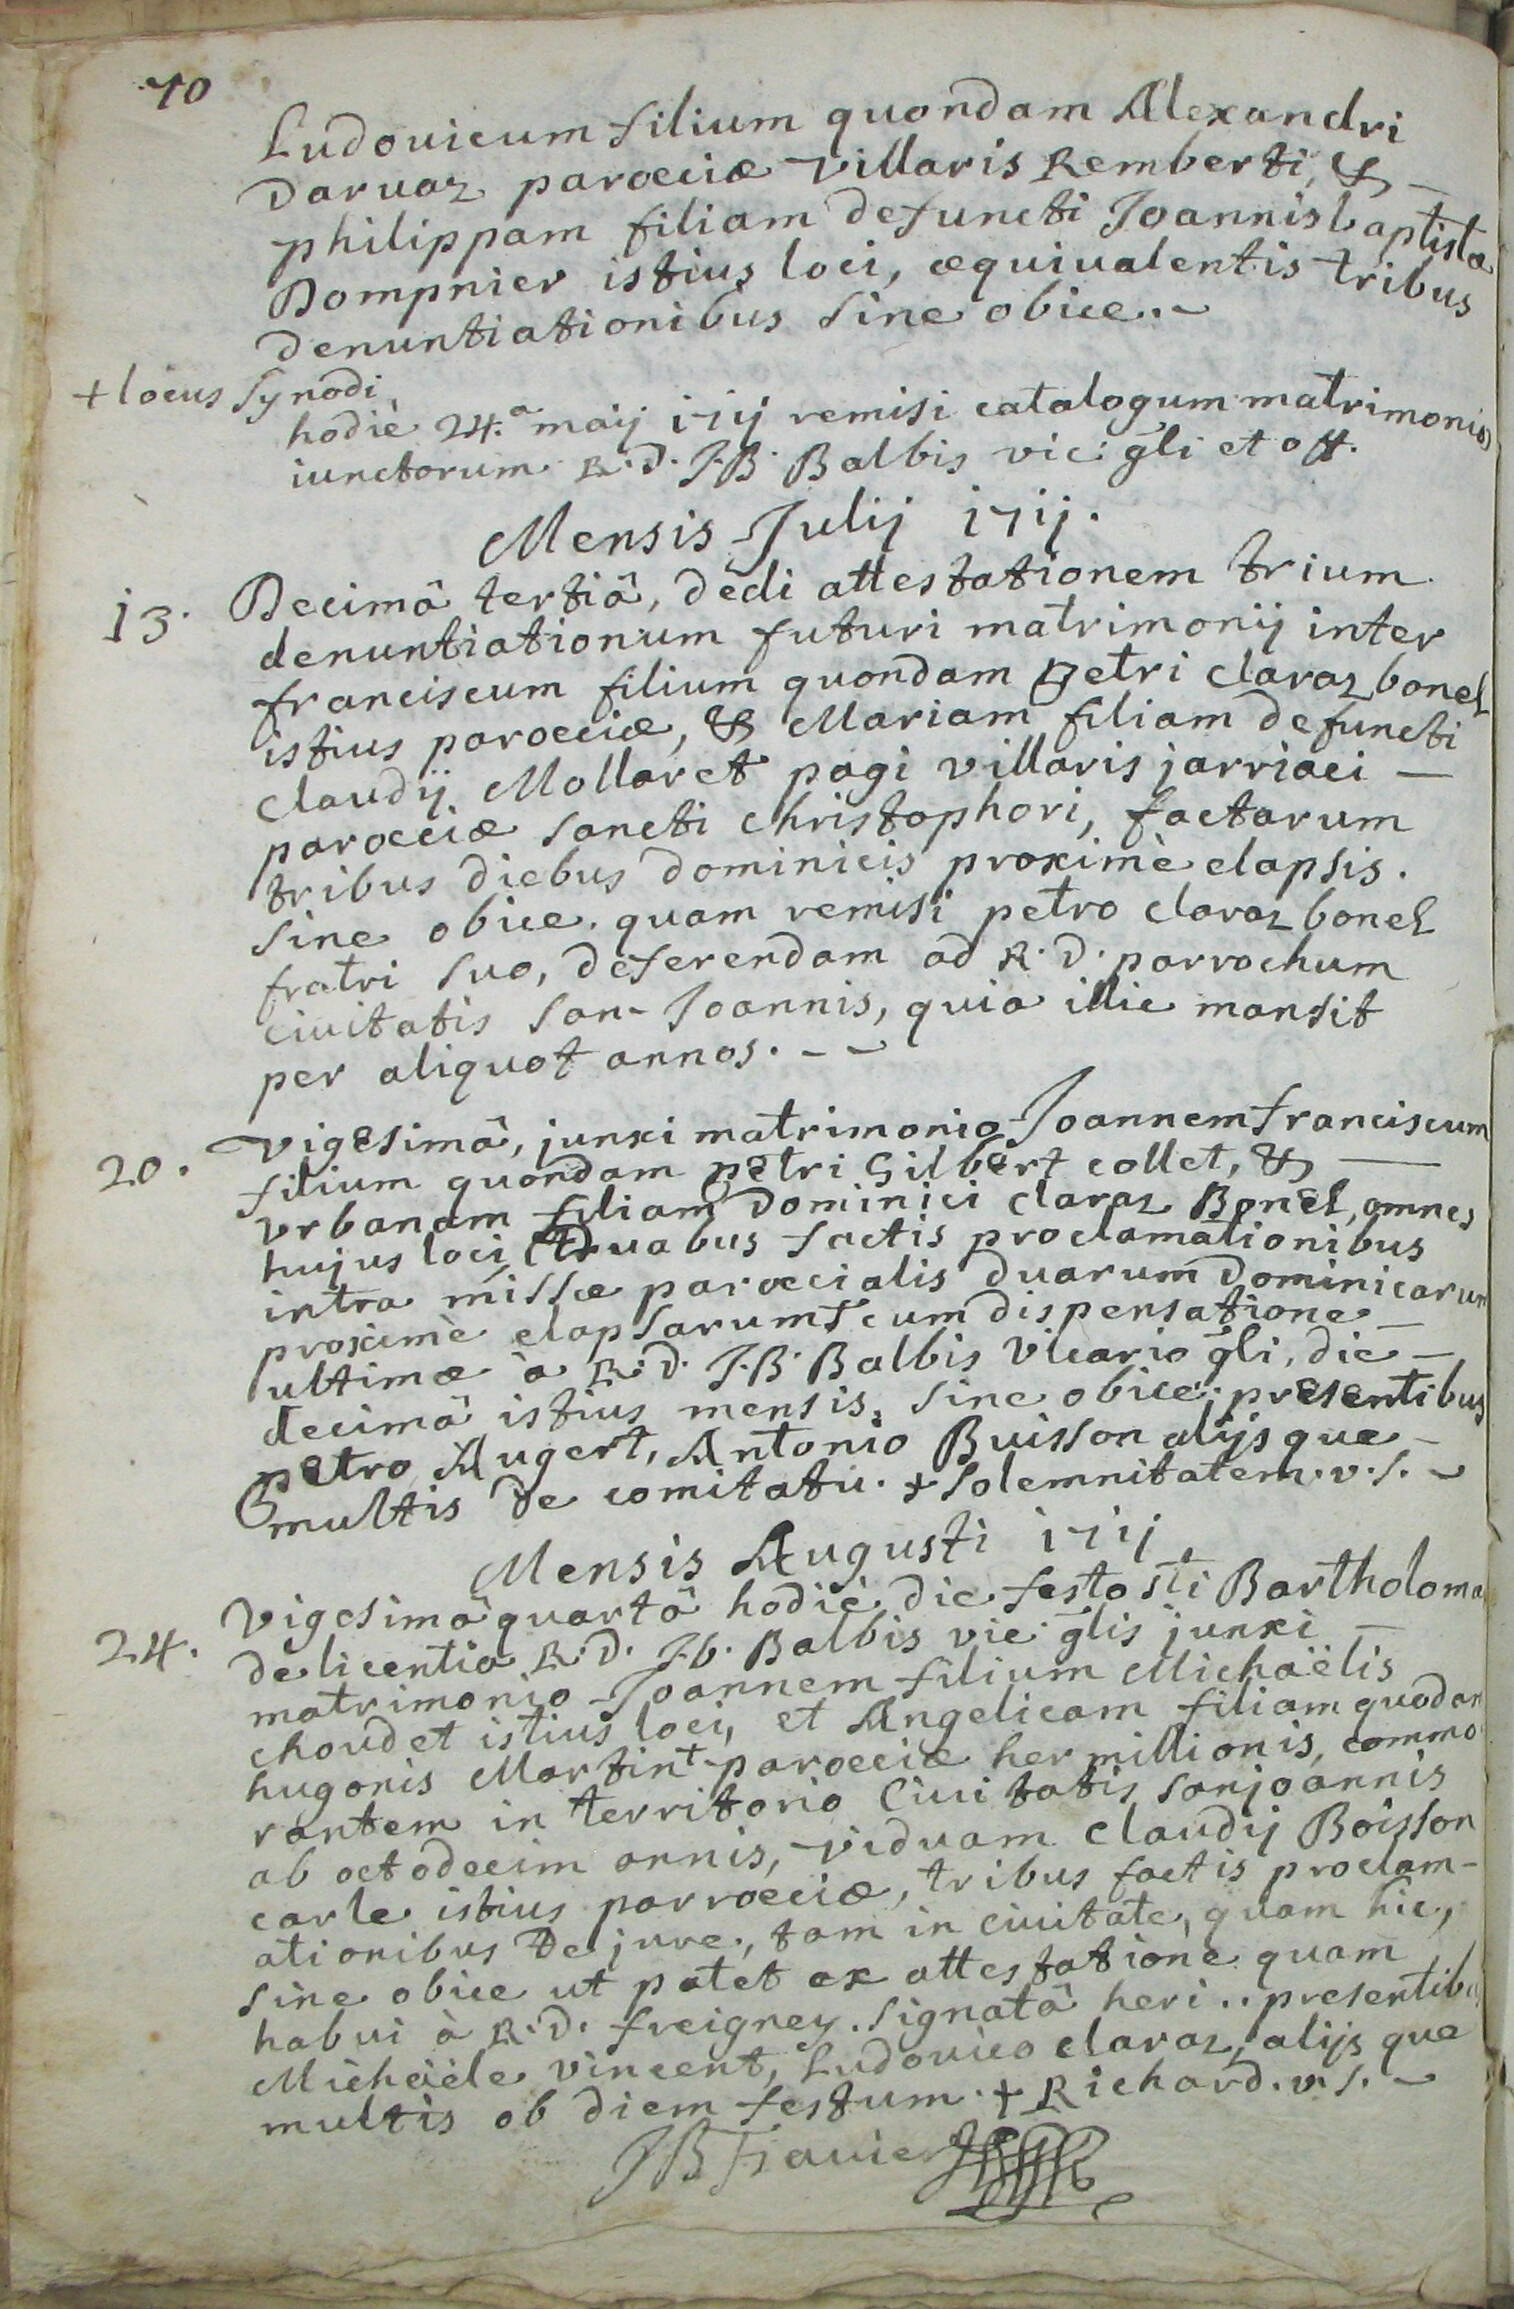 70
Ludouicum filium quondam Alexandri
Daruaz parœciæ Villaris Remberti, &
philippam filiam defuncti Joannisbaptistæ
Dompnier istius loci, æquiualentis tribus
denuntiationibus sine obice.
+ locus synodi
hodiè 24.ª maij 1711 remisi catalogum matrimonio
iunctorum R.D. J.B. Balbis vic: gli et off.
Mensis Julij 1711.
13. Decimâ tertiâ, dedi attestationem trium
denuntiationum futuri matrimonij inter
franciscum filium quondam Petri claraz bonel
istius parœciæ, & Mariam filiam defuncti
claudij Mollaret pagi villaris jarriaci
parœciæ sancti christophori, factarum
tribus diebus dominicis proximè elapsis.
sine obice. quam remisi petro claraz bonel
fratri suo, deferendam ad R.D. parrochum
ciuitatis san-Joannis, quia illic mansit
per aliquot annos.
20. Vigesimâ, junxi matrimonio Joannemfranciscum
filium quondam petri Gilbert collet, &
Vrbanam filiam Dominici claraz Bonel, omnes
hujus loci, Duabus factis proclamationibus
intra missæ parœcialis duarum Dominicarum
proximè elapsarum + cum dispensatione
ultimæ à R.D. J.B. Balbis Vicario gli, die
decimâ istius mensis, sine obice; presentibus
petro Augert, Antonio Buisson alijsque
multis de comitatu. + solemnitatem. v.s.
Mensis Augusti 1711
24. Vigesimâ quartâ hodiè die festo sti Bartholomæ
de licentia R.D. J.b. Balbis vic: glis junxi
matrimonio Joannem filium Michaëlis
choudet istius loci, et Angelicam filiam quodam
hugonis Martin + parœciæ hermillionis, commo
rantem in territorio Ciuitatis sanjoannis
ab octodecim annis, viduam claudij Boisson
carle istius parrœciæ, tribus factis proclam-
ationibus de jure, tam in ciuitate, quam hic,
sine obice ut patet ex attestatione quam
habui à R.D. freigney. signatâ heri.. presentibus
Michaële vincent, Ludouico claraz, alijs que
multis ob diem festum. + Richard. v.s.
JB Frauier